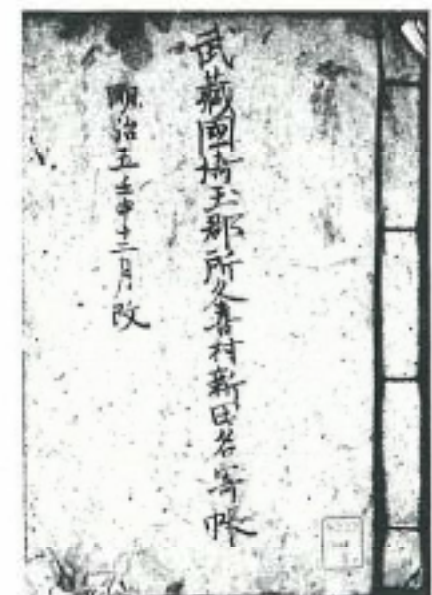 武蔵國埼玉郡所久喜村新田名寄帳
明治五壬申十二月改